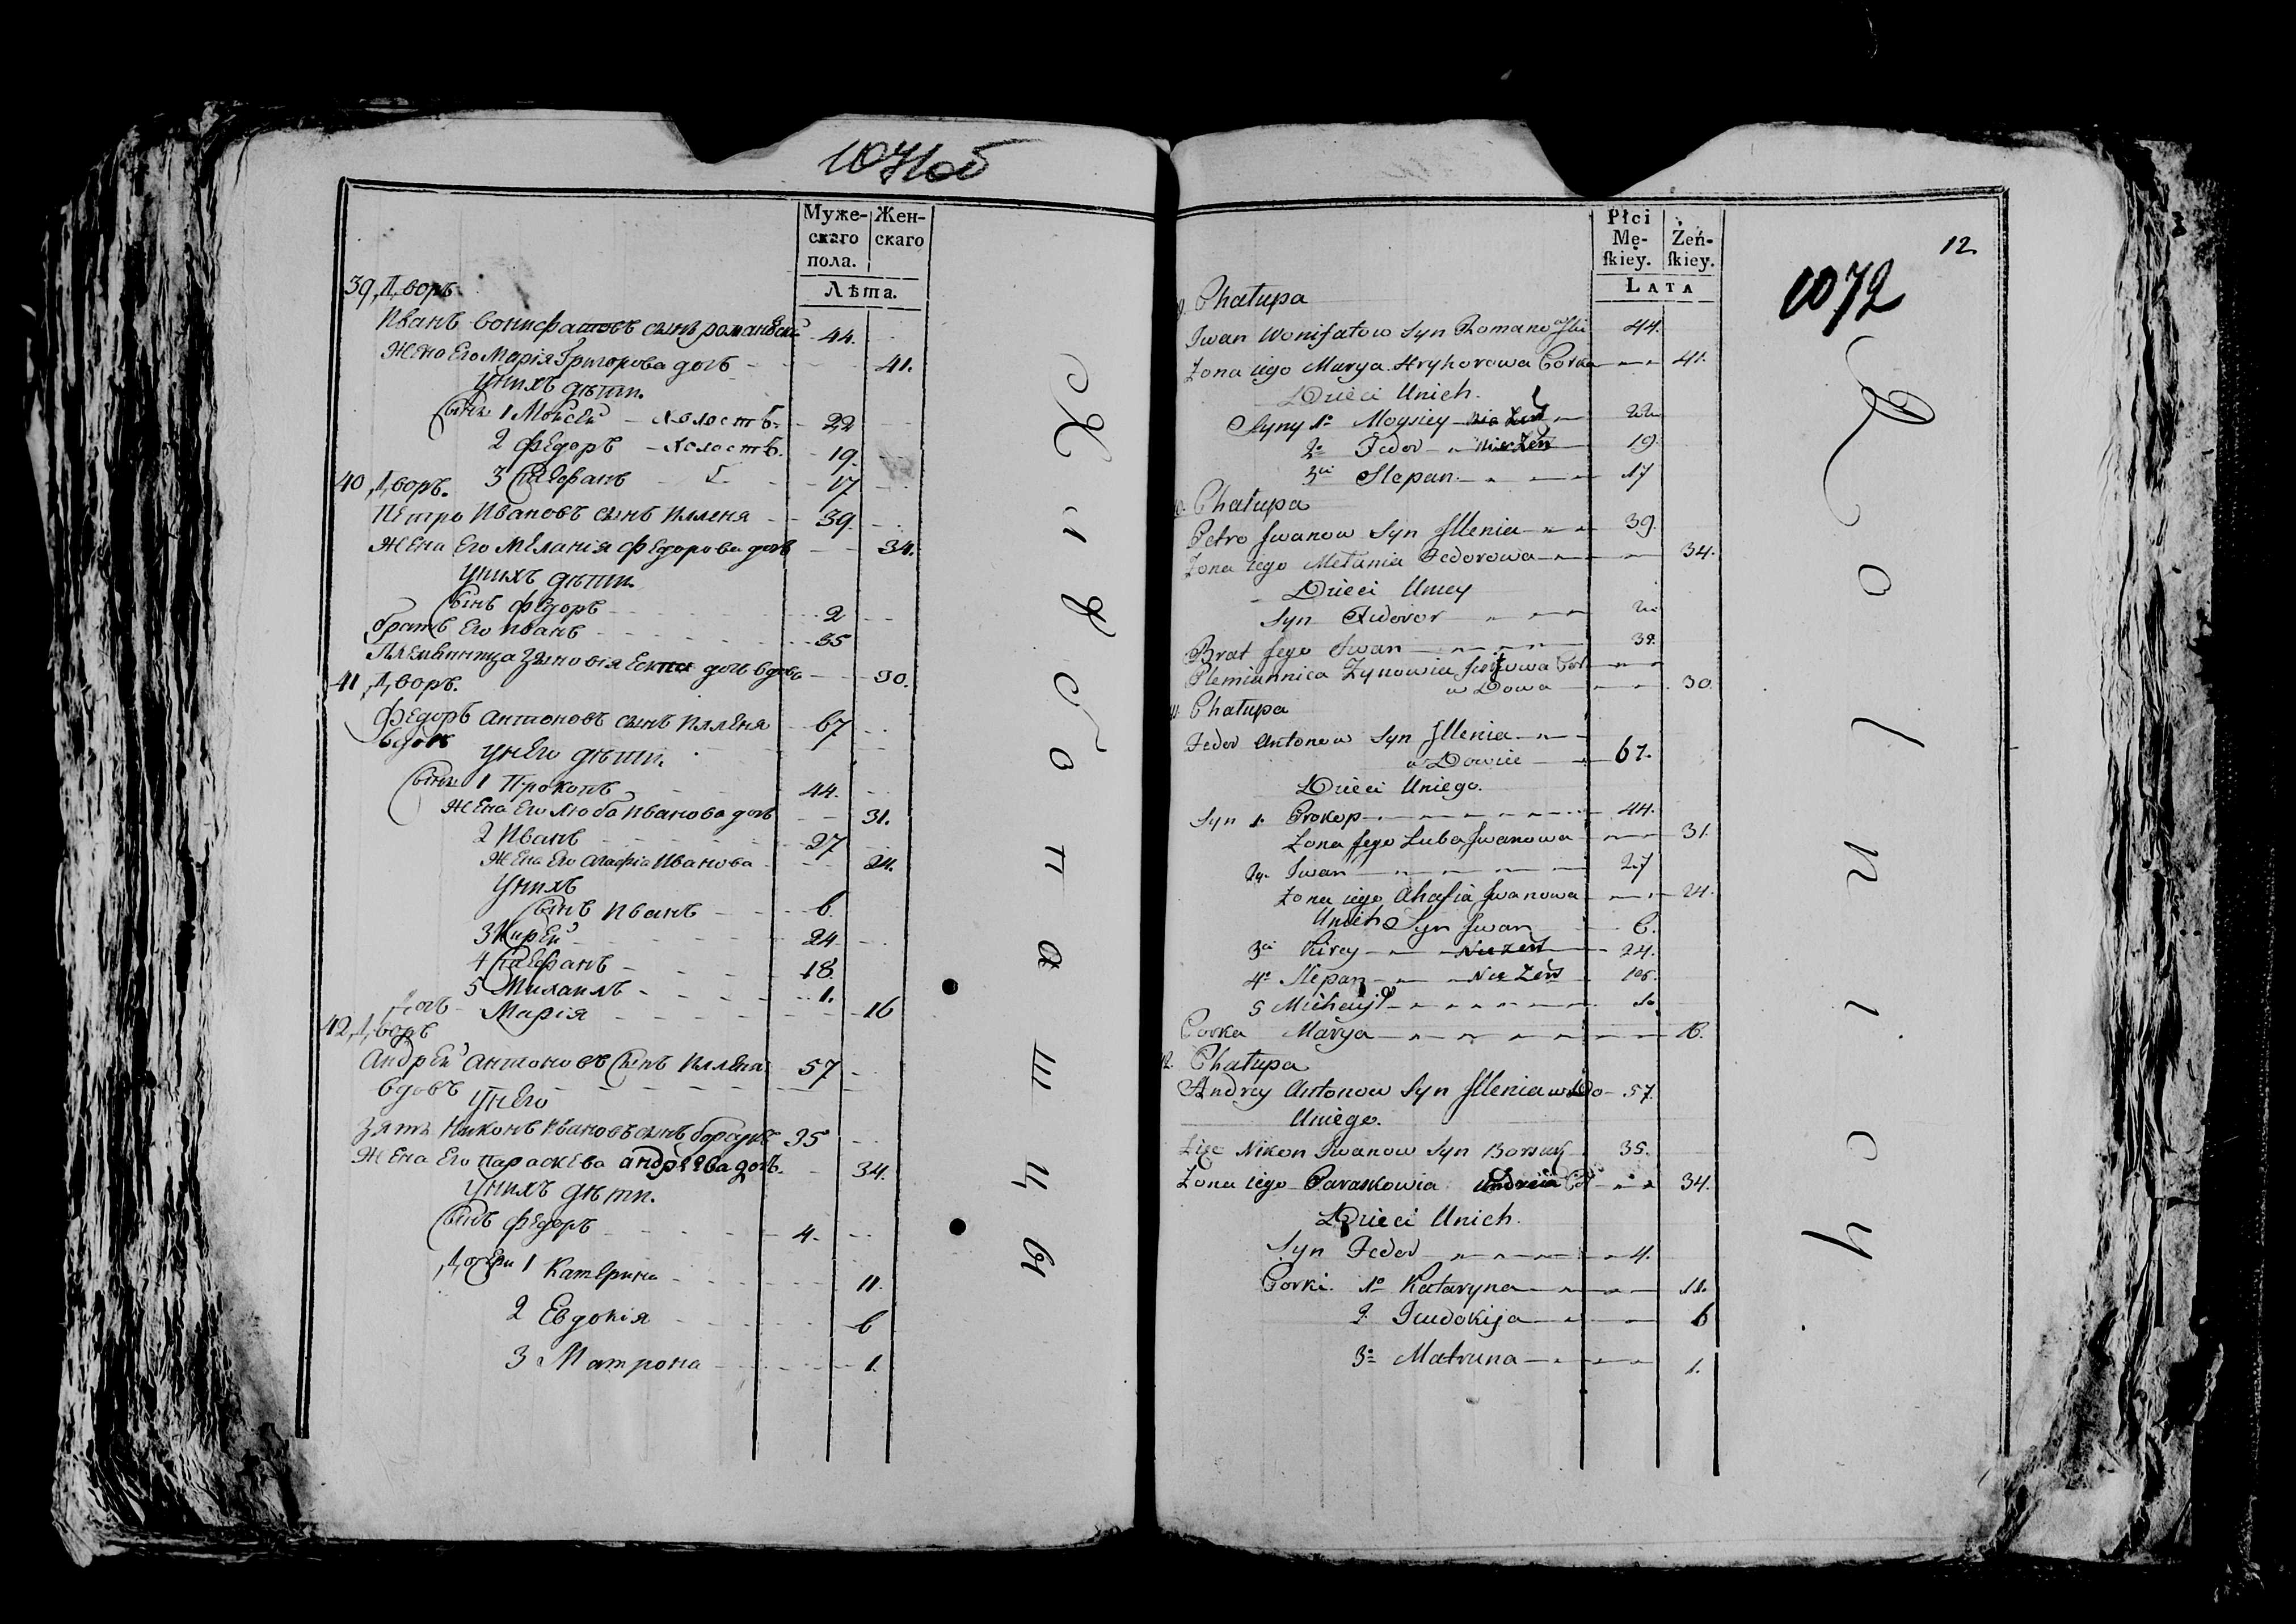 1071об
Муже-
скаго
пола.
Жен-
скаго
Лѣта.
39, Дворъ.
Иванъ Вонифатовъ сынъ романовски 44.
Жена Его Марія Григорова дочь 41.
Унихъ дѣти.
Сынъ 1 Мойсей холостъ. 22
2 Федоръ холостъ. 19.
3 Стефанъ 17
40, Дворъ.
Петро Ивановъ сынъ Илленя 39.
Жена Его Меланія Федорова дочь 34.
Унихъ дѣти.
Сынъ Федоръ 2
братъ Его Иванъ 35
Племянница Зиновія дочь вдова 30.
41, Дворъ.
Федоръ Антоновъ сынъ Илленя 67
вдовъ
Унего дѣти.
Сынъ 1 Прокопъ 44.
Жена Его Люба Иванова дочь 31.
2 Иванъ 27
Жена Его Агафіа Иванова 24.
Унихъ
Сынъ Иванъ 6.
3 Кирей 24
4 Стефанъ 18.
5 Михаилъ 1.
Дочь Марія 16
42, Дворъ
Андрей Антоновъ Сынъ Илленя 57
Вдовъ
Унего
Зять Никонъ Ивановъ сынъ борсукъ 35
Жена Его Параскева андрѣева дочь. 34.
Унихъ дѣти.
Сынъ Федоръ 4.
Дочери 1 Катерина 11.
2 Евдокія 6
3 Матрона 1.
Хлѣбопашцы
Płci
Mę-
ſkiey.
Żeń-
ſkiey.
LATA
12.
1072
Chałupa
Iwan Wonifatow Syn Romanowſki 44.
Żona iego Marya Hryhorowa Corka 41.
Dzieci Unich.
Syny 1o Moysiey nie Żen 22
2o Fedor nie Żen 19.
3ci Stepan 17
Chałupa
Petro Iwanow Syn Illenia 39.
Żona iego Melania Fedorowa 34.
Dzieci Uniey
Syn Fiedor 2
Brat Jego Iwan
Plemiannica Zynowia Cor
w Dowa 30.
Chałupa
Fedor Antonow Syn Illenia
w Dowiec 67.
Dzieci Uniego.
Syn 1. Prokop 44.
Żona Jego Luba Iwanowa 31.
2y. Iwan 27
Żona iego Ahafia Iwanowa 24.
Unich Syn Iwan 6.
3ci Kirey Nie żen 24.
4o Stepan Nie Żen 18.
5 Michayl 1.
Corka Marya 16.
Chałupa
Andrey Antonow Syn Illenia wDo 57.
Uniego.
Zięć Nikon Iwanow Syn Borsuk 35.
Żona iego Paraskowia Andreia Cor 34.
Dzieci Unich.
Syn Fedor 4.
Corki. 1o Kataryna 11.
2. Jeudokija 6
3o Matruna 1.
Rolnicy